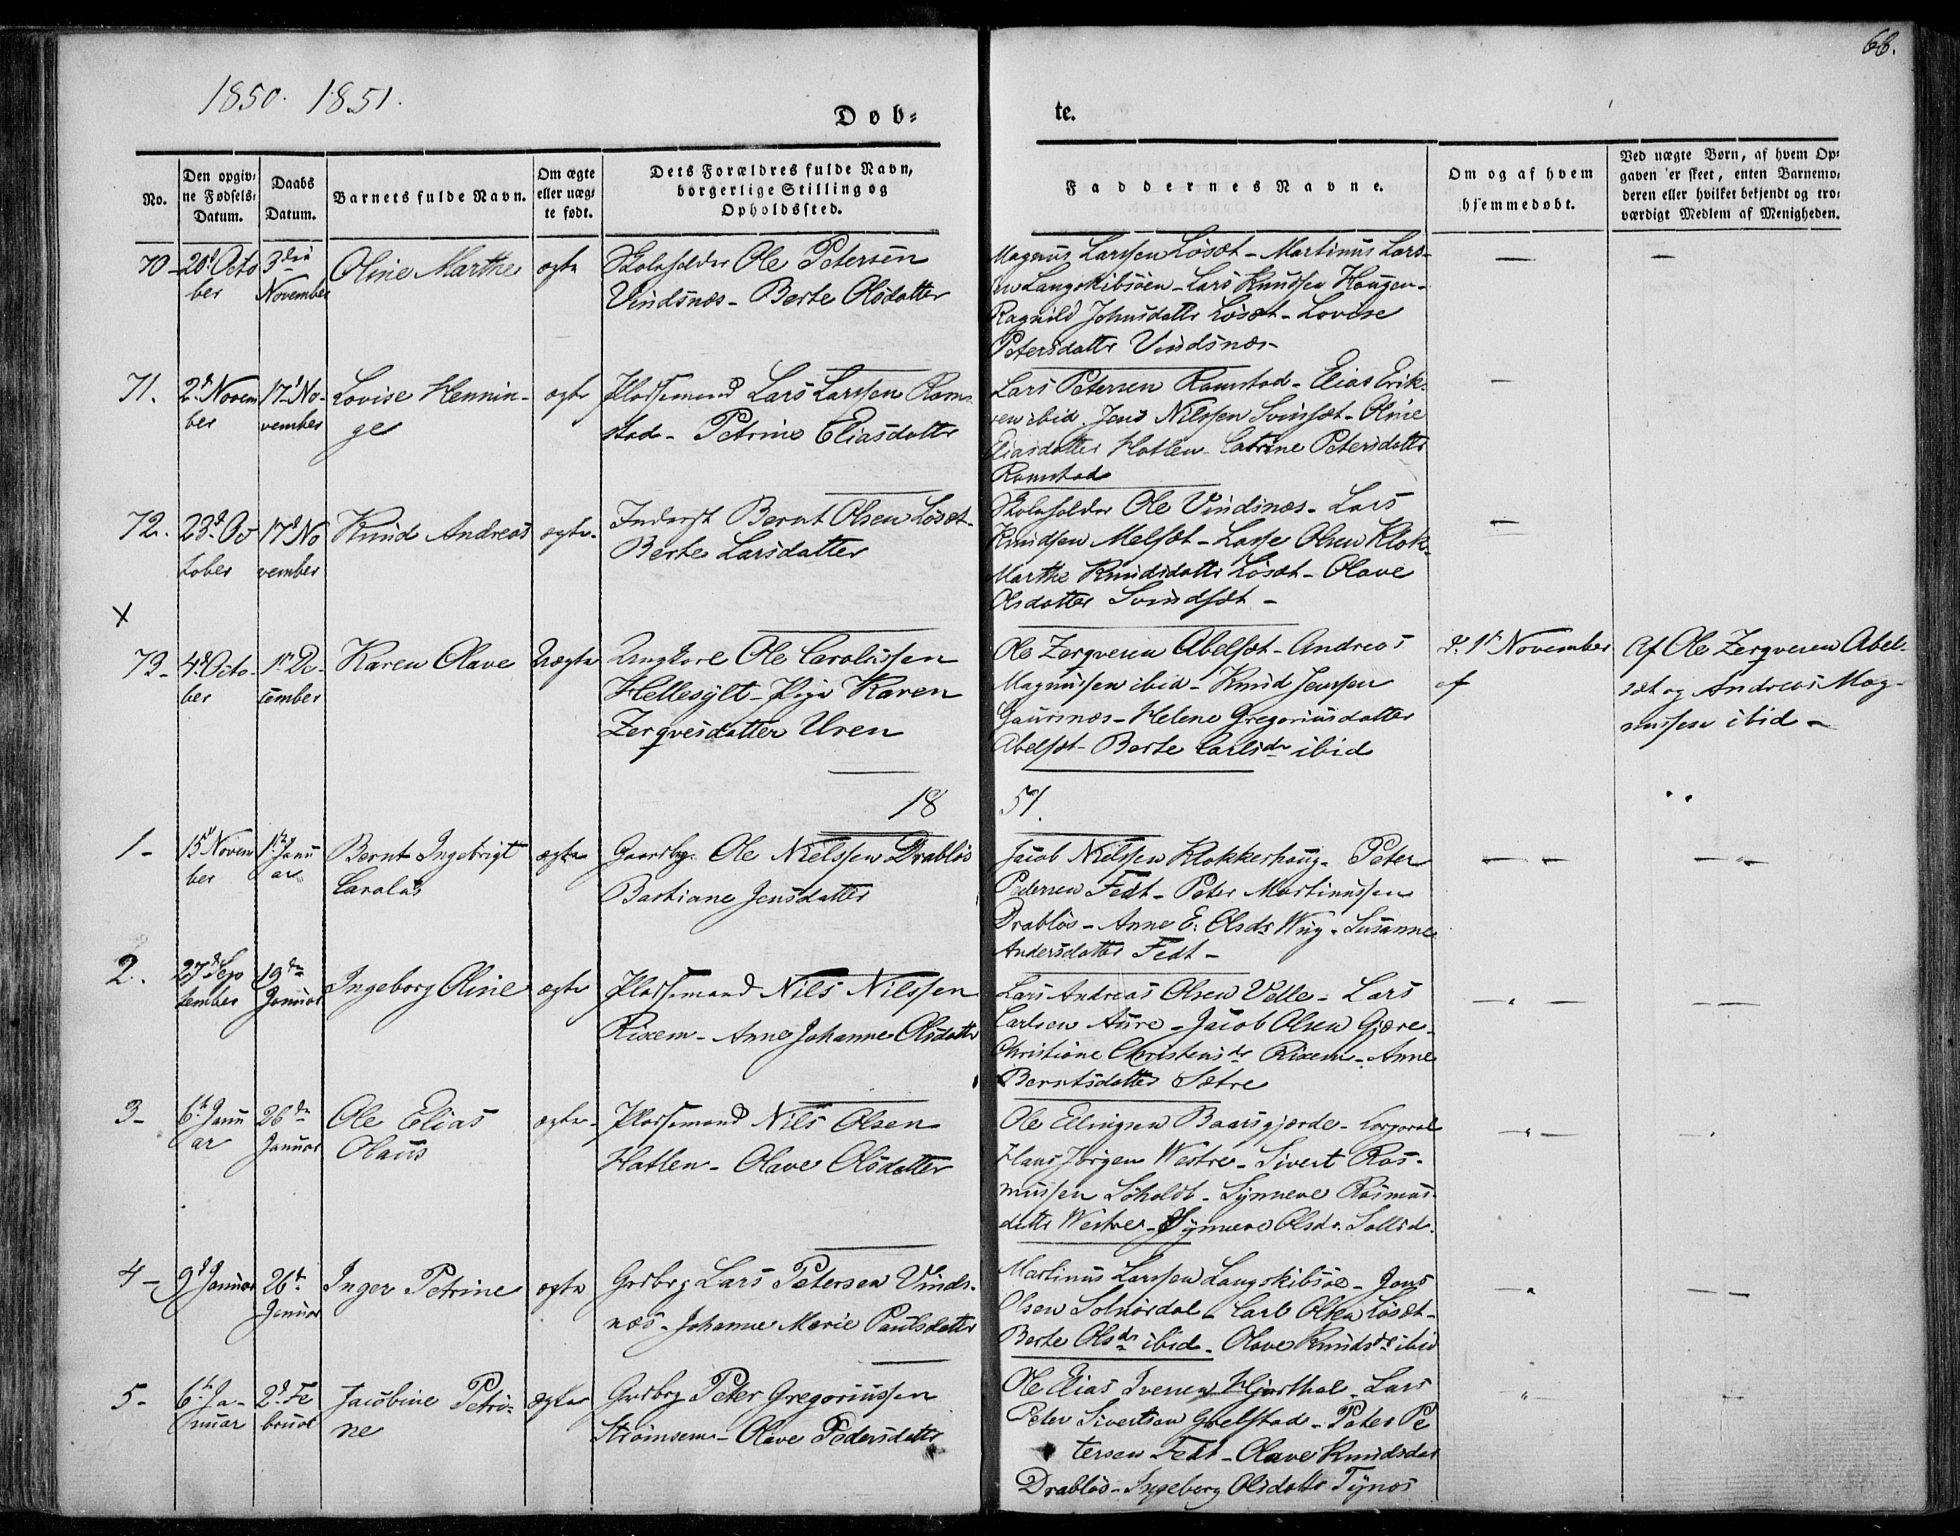 66.
1850. 1851.
Døb-
te.
No.
Den opgiv-
ne Fødsels-
Datum.
Daabs
Datum.
Barnets fulde Navn.
Om ægte
eller uæg-
te født.
Dets Forældres fulde Navn,
borgerlige Stilling og
Opholdssted.
Faddernes Navne.
Om og af hvem
hjemmedøbt.
Ved uægte Børn, af hvem Op-
gaven er skeet, enten Barnemo-
deren eller hvilket bekjendt og tro-
værdigt Medlem af Menigheden.
70 -
20d Octo
ber
3die
November
Oline Marthe
ægte
Skoleholder Ole Petersen
Vindsnæs - Berte Olsdatter
Magnus Larssen Løsæt - Martinus Lars-
en Langskibsøen - Lars Knudsen Haugen -
Ragnild Johnsdatter Løsæt - Lovise
Petersdatter Vindsnæs -
71.
2d Novem
ber
17d No-
vember
Lovise Hennin-
ge
ægte
Pladsemand Lars Larssen Ram-
stad - Petrine Eliasdatter
Lars Petersen Ramstad - Elias Erik-
sen ibid. Jens Nilssen Svinsæt - Oline
Eliasdatter Hatlen - Catrine Petersdatter
Ramstad
72.
23d Oc
tober
17d No
vember
Knud Andreas
ægte -
Inderst Bernt Olsen Løsæt -
Berte Larsdatter
Skoleholder Ole Vindsnæs - Lars
Knudsen Melsæt - Lasse Olsen Klok-
Marthe Knudsdatter Løsæt - Olave
Olsdatter Svindsæt -
x
73 -
4d Octo-
ber
1ste De-
cember
Karen Olave
Uægte
Ungkarl Ole Carolussen
Hellesylt - Pige Karen
Zerqvesdatter Uren
Ole Zerqvesen Abelsæt - Andreas
Magnussen ibid - Knud Jenssen
Gaursnæs - Helene Gregoriusdatter
Abelsæt - Berte Carlsdr ibid
d. 1st November
af
Af Ole Zerqvesen Abel-
sæt og Andreas Mag-
nussen ibid -
18
51.
1 -
15d Novem
ber
1ste Janu
ar
Bernt Ingebrigt
Carolus
ægte
Gaardbr. Ole Nielssen Drabløs
Bastiane Jensdatter
Jacob Nielssen Klokkerhaug - Peter
Pedersen Fedt - Peter Martinussen
Drabløs - Anne E. Olsdr Wiig - Susanne
Andersdatter Fedt -
2.
27d Sep
tember
19de
Januar
Ingeborg Oline
ægte
Pladsemand Nils Nilssen
Rixem - Anne Johanne Olsdatter
Lars Andreas Olsen Velle - Lars
Carlsen Aure - Jacob Olsen Gjære -
Christiane Christensdr Rixem - Anne
Berntsdatter Sætre
3 -
6t Janu
ar
26de
Januar
Ole Elias
Olaus
ægte -
Pladsemand Nils Olsen
Hatlen - Olave Olsdatter
Ole Ellingsen Baarsgjerde - Corporal
Hans Jørgen Westre - Sivert Ras-
mussen Søholdt - Synneve Rasmus-
datter Westre - Synneve Olsdr. Sollid.
4 -
9d Januar
26de
Januar
Inger Petrine
ægte
Grdbrg Lars Petersen Vinds-
næs - Johanne Marie Paulsdatter
Martinus Larssen Langskibsøe - Jens
Olsen Solnørdal - Carl Olsen Løsæt -
Berte Olsdr ibid - Olave Knudsdr ibid
5 -
6t Ja-
nuar
2d Fe
bruar
Jacobine Petri-
ne
ægte
Grdbrg Peter Gregoriussen
Strømsem - Olave Pedersdatter
Ole Elias Iversen Hjorthol - Lars
Peter Sivertsen Gjelstad - Peter Pe
tersen Fedt - Olave Knudsdar
Drabløs - Ingeborg Olsdatter Tynæs